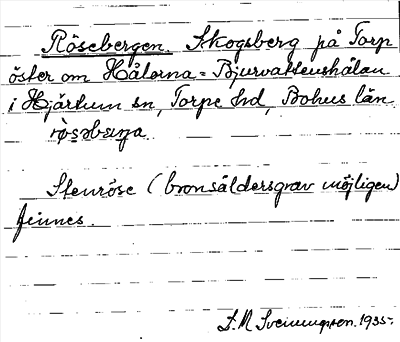 Rösebergen. Skogsberg på Torp
öster om Hålorna = Bjurvattenshålan
i Hjärtum sn, Torpe hd, Bohus län.

Stenröse (bronsåldersgrav möjligen)
finnes.
S. M. Sveningsson. 1935.